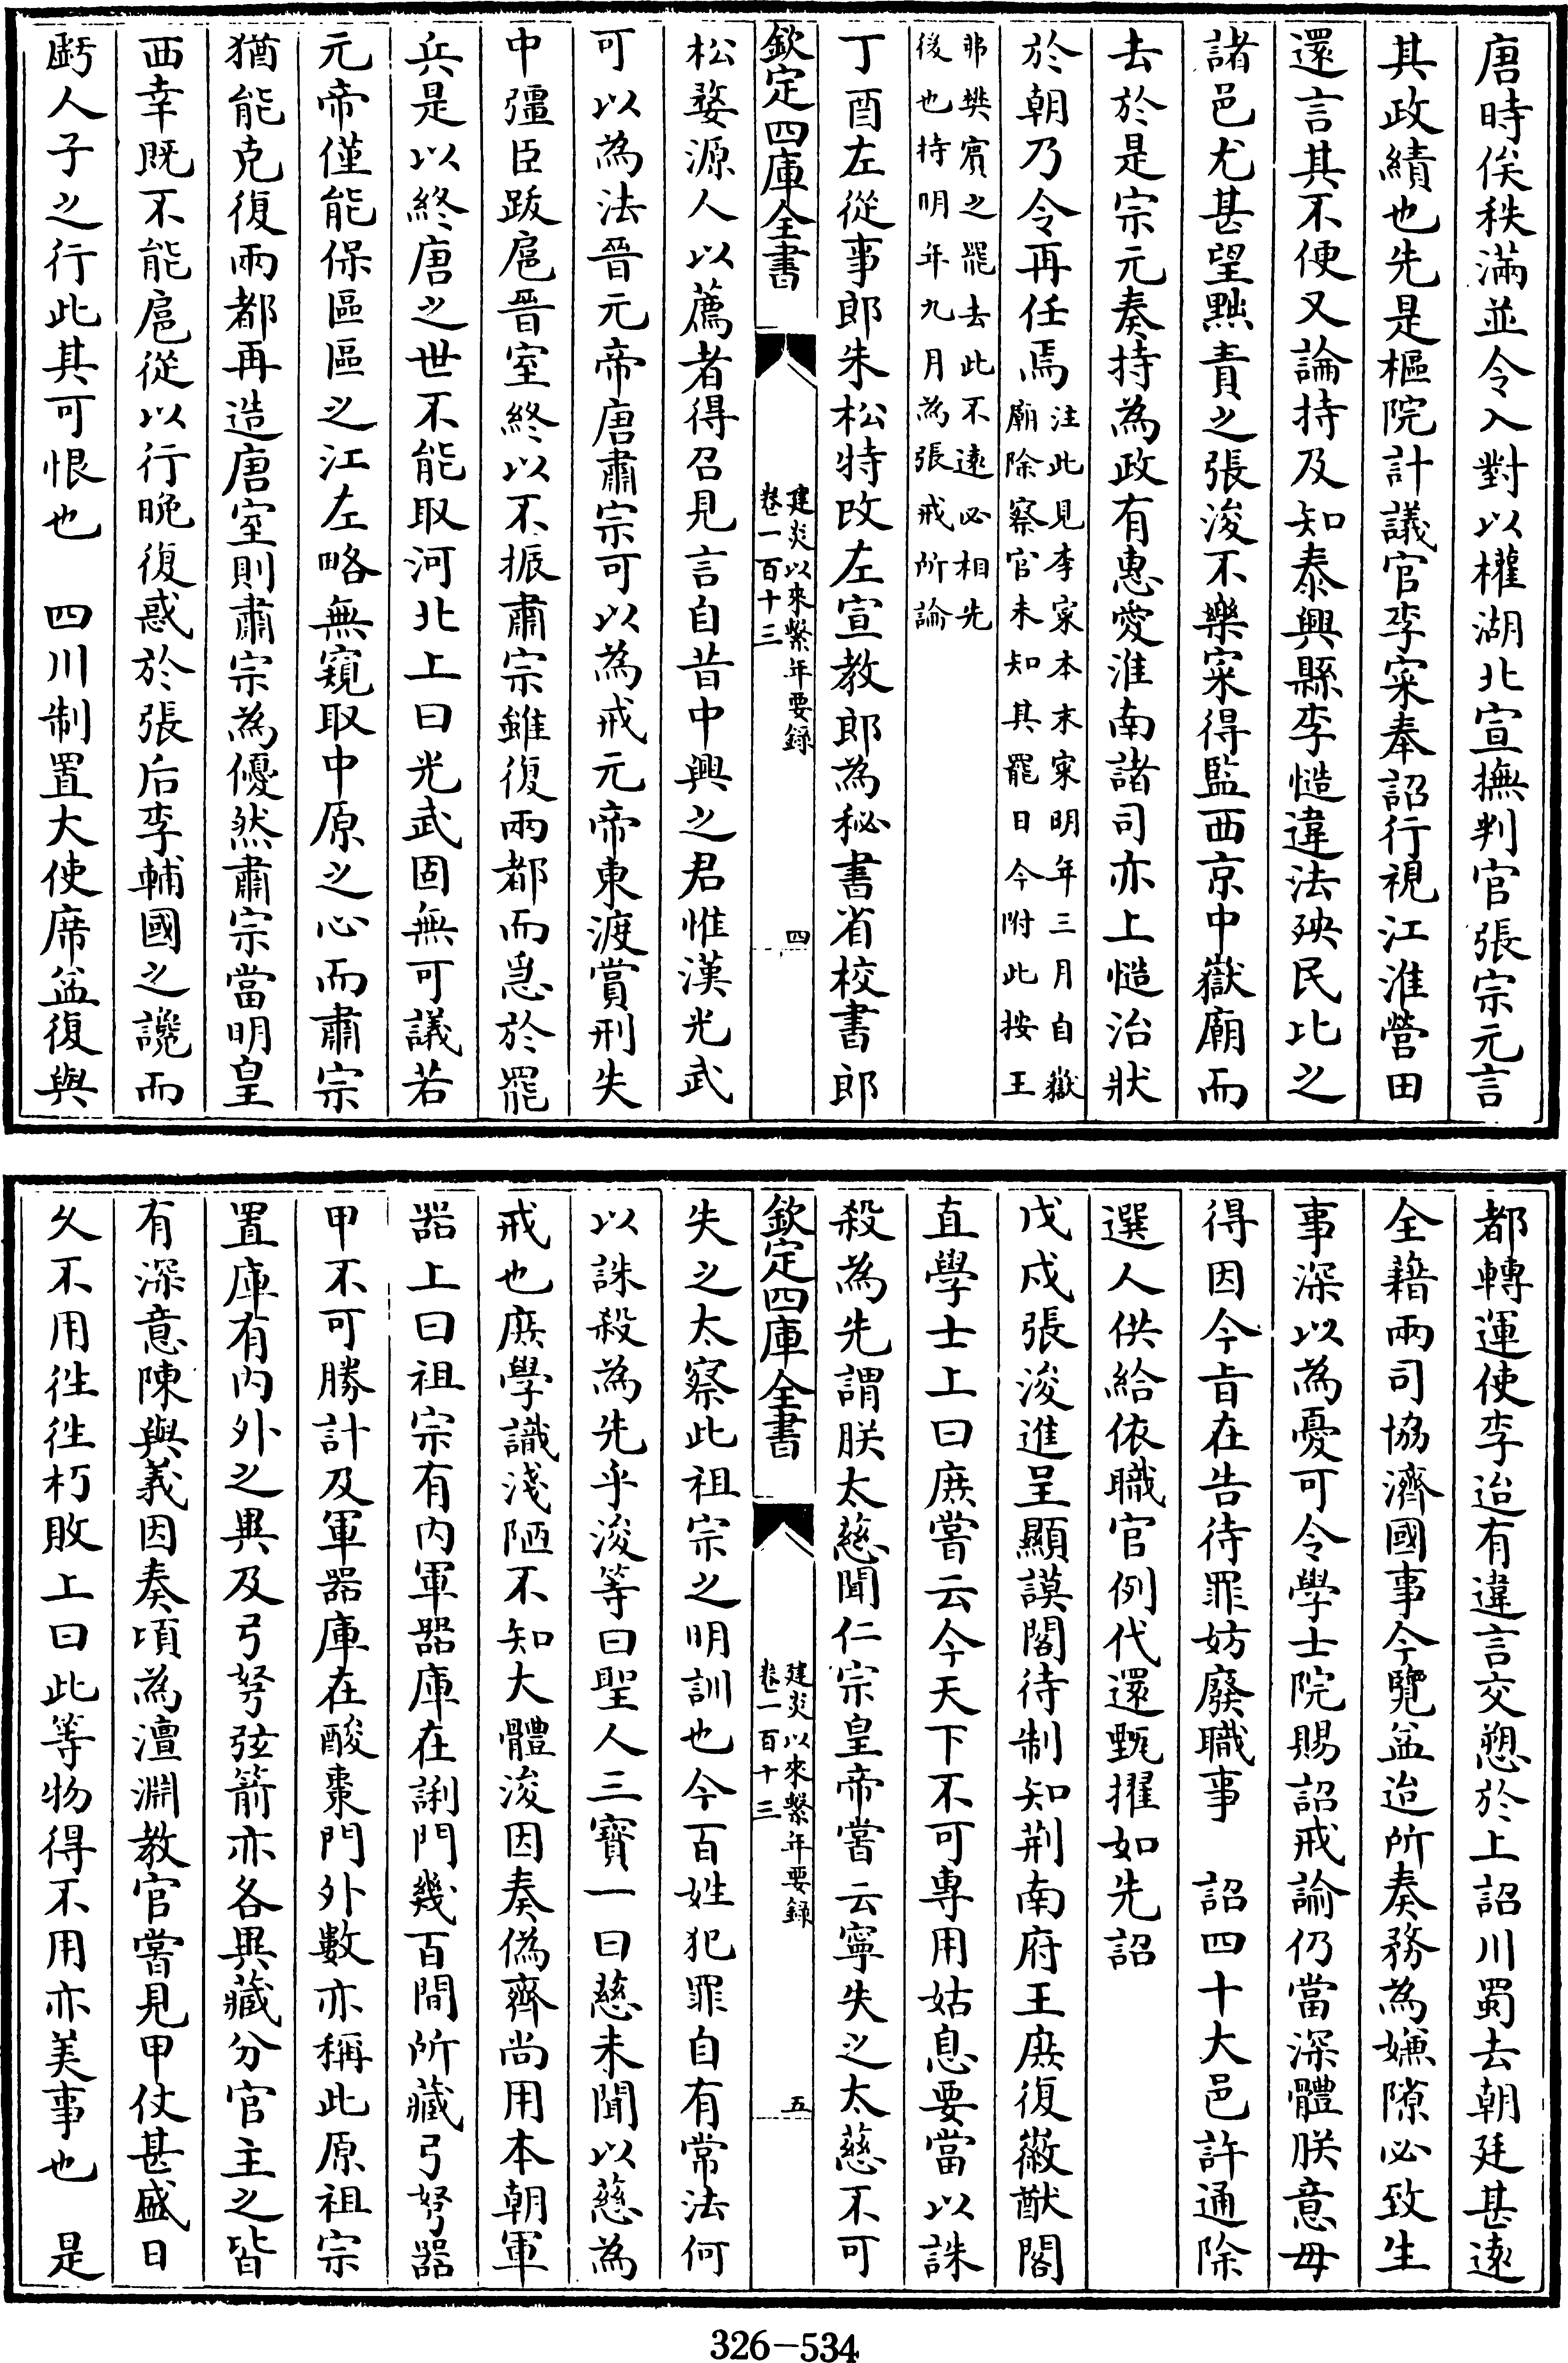 唐時俟秩滿並令入對以權湖北宣撫判官張宗元言
其政績也先是樞院計議官李寀奉詔行視江淮營田
還言其不便又論持及知泰興縣李慥違法殃民比之
諸邑尤甚望黜責之張浚不樂寀得監西京中嶽廟而
去於是宗元奏持為政有惠愛淮南諸司亦上慥治狀
於朝乃令再任焉注此見李寀本末寀明年三月自嶽
廟除察官未知其罷日今附此按王
弗樊賓之罷去此不遠必相先
後也持明年九月為張戒所論
丁酉左從事郎朱松特改左宣教郎為秘書省校書郎
欽定四庫全書
建炎以來繫年要錄
卷一百十三
四
松婺源人以薦者得召見言自昔中興之君惟漢光武
可以為法晉元帝唐肅宗可以為戒元帝東渡賞刑失
中彊臣跋扈晉室終以不振肅宗雖復兩都而急於罷
兵是以終唐之世不能取河北上曰光武固無可議若
元帝僅能保區區之江左略無窺取中原之心而肅宗
猶能克復兩都再造唐室則肅宗為優然肅宗當明皇
西幸既不能扈從以行晚復惑於張后李輔國之讒而
虧人子之行此其可恨也 四川制置大使席益復與
都轉運使李迨有違言交愬於上詔川蜀去朝廷甚遠
全藉兩司協濟國事今覽益迨所奏務為嫌隙必致生
事深以為憂可令學士院賜詔戒諭仍當深體朕意毋
得因今旨在告待罪妨廢職事 詔四十大邑許通除
選人供給依職官例代還甄擢如先詔
戊戌張浚進呈顯謨閣待制知荆南府王庶復徽猷閣
直學士上曰庶嘗云今天下不可專用姑息要當以誅
殺為先謂朕太慈聞仁宗皇帝嘗云寧失之太慈不可
欽定四庫全書
建炎以來繫年要錄
卷一百十三
五
失之太察此祖宗之明訓也今百姓犯罪自有常法何
以誅殺為先乎浚等曰聖人三寶一曰慈未聞以慈為
戒也庶學識淺陋不知大體浚因奏偽齊尚用本朝軍
器上曰祖宗有內軍器庫在謻門幾百間所藏弓弩器
甲不可勝計及軍器庫在酸棗門外數亦稱此原祖宗
置庫有内外之異及弓弩弦箭亦各異藏分官主之皆
有深意陳與義因奏頃為澶淵教官嘗見甲仗甚盛日
久不用徃徃朽敗上曰此等物得不用亦美事也 是
326-534